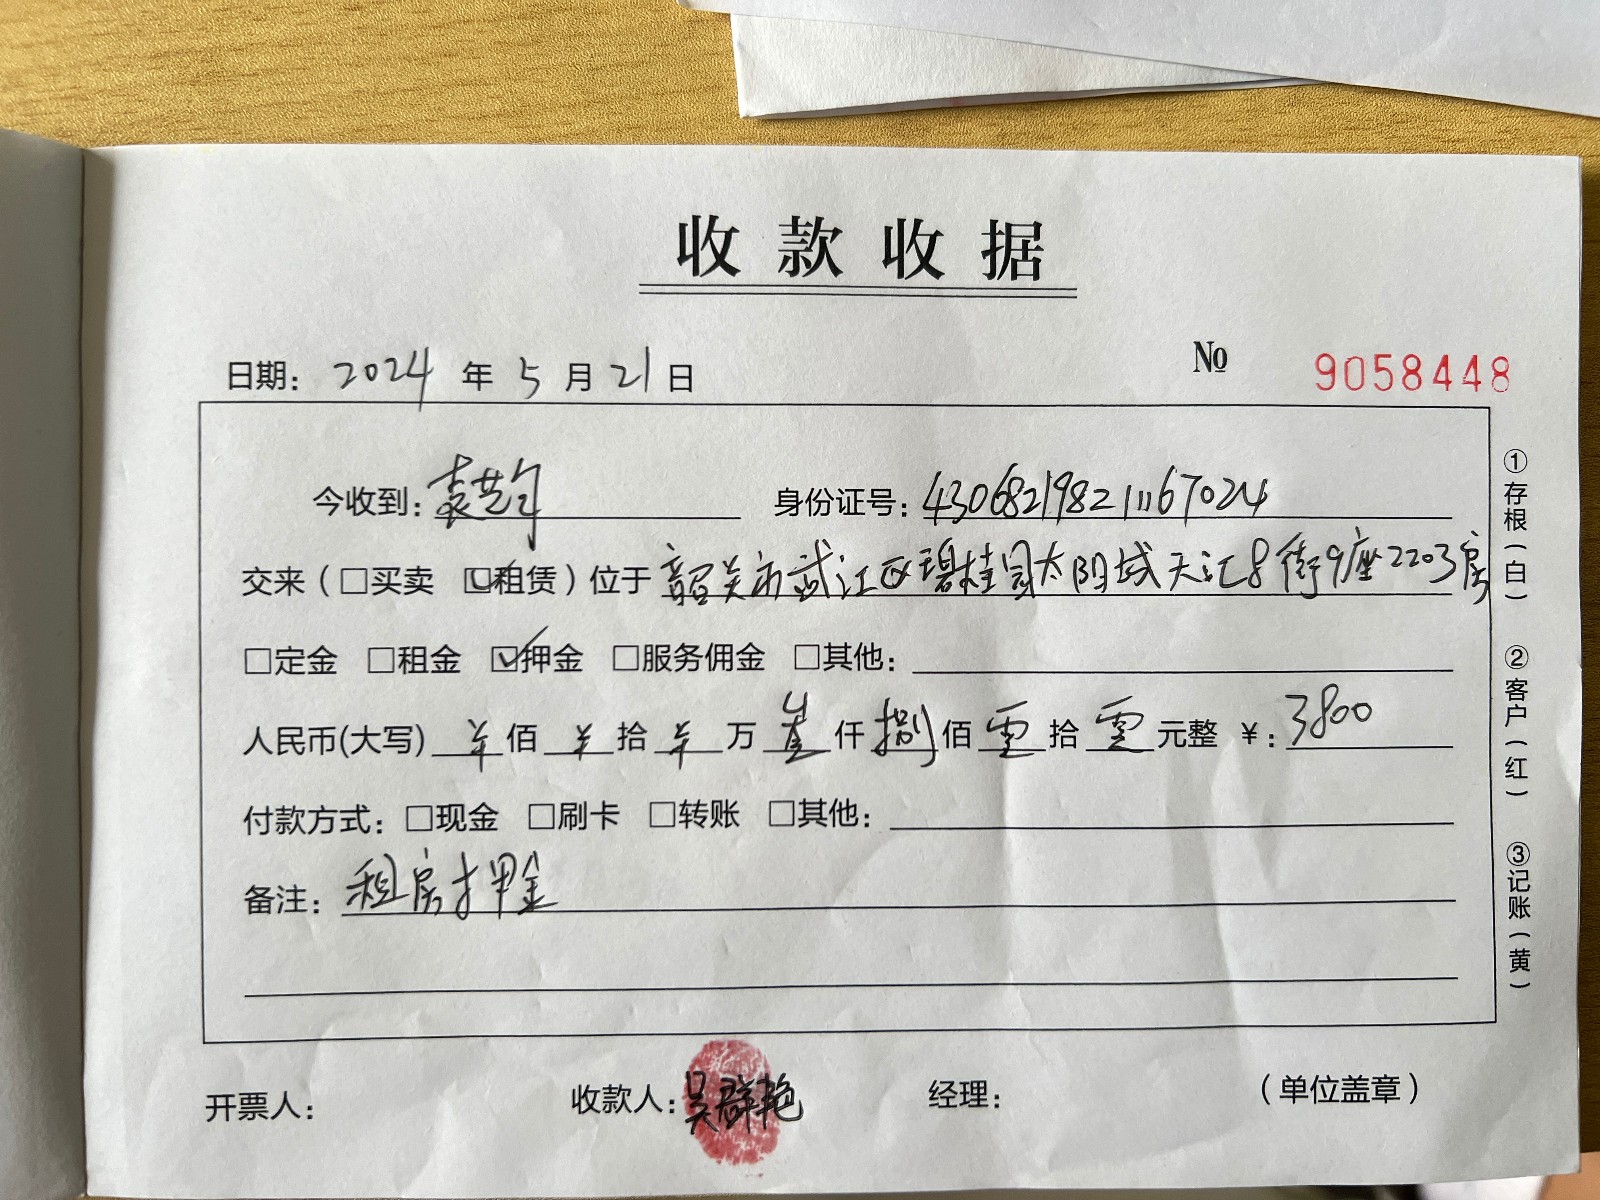 收款收据
日期: 2024 年 5 月 21 日 № 9058448
今收到: 袁 身份证号: 430682198211167024
交来(□买卖 ☑租赁)位于 韶关市武江区碧桂园太阳城天汇8街9座2203房
□定金 □租金 ☑押金 □服务佣金 □其他:
人民币(大写) ¥ 佰 ¥ 拾 ¥ 万 叁 仟 捌 佰 零 拾 零 元整 ¥: 3800
付款方式: □现金 □刷卡 □转账 □其他:
备注: 租房押金
开票人: 收款人: 吴群艳 经理: (单位盖章)
①存根(白) ②客户(红) ③记账(黄)